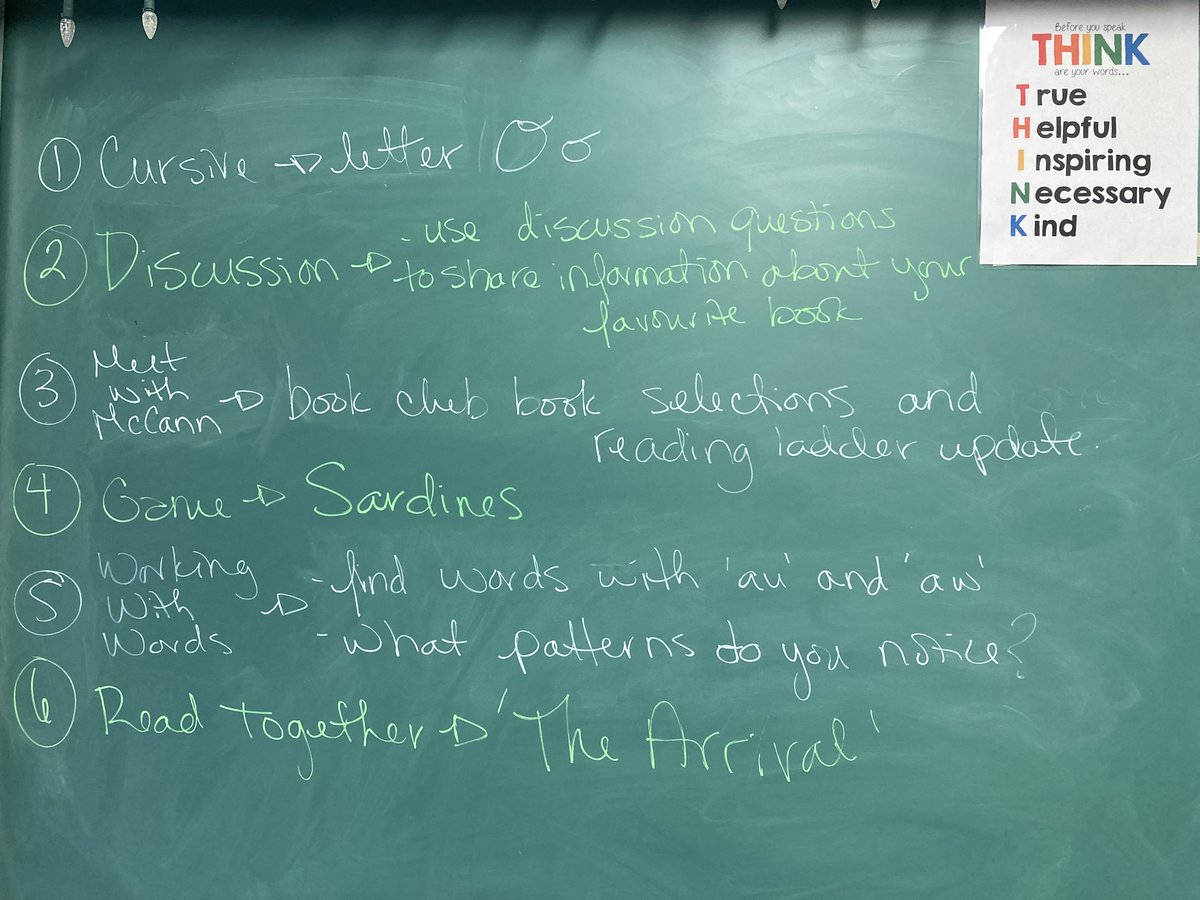 ① Cursive → letter Oo
② Discussion → - use discussion questions
to share information about your
favourite book
③ Meet
with
McCann → book club book selections and
reading ladder update.
④ Game → Sardines
⑤ Working
With
Words → - find words with 'au' and 'aw'
- what patterns do you notice?
⑥ Read Together → 'The Arrival'
Before you speak
THINK
are your words...
True
Helpful
Inspiring
Necessary
Kind